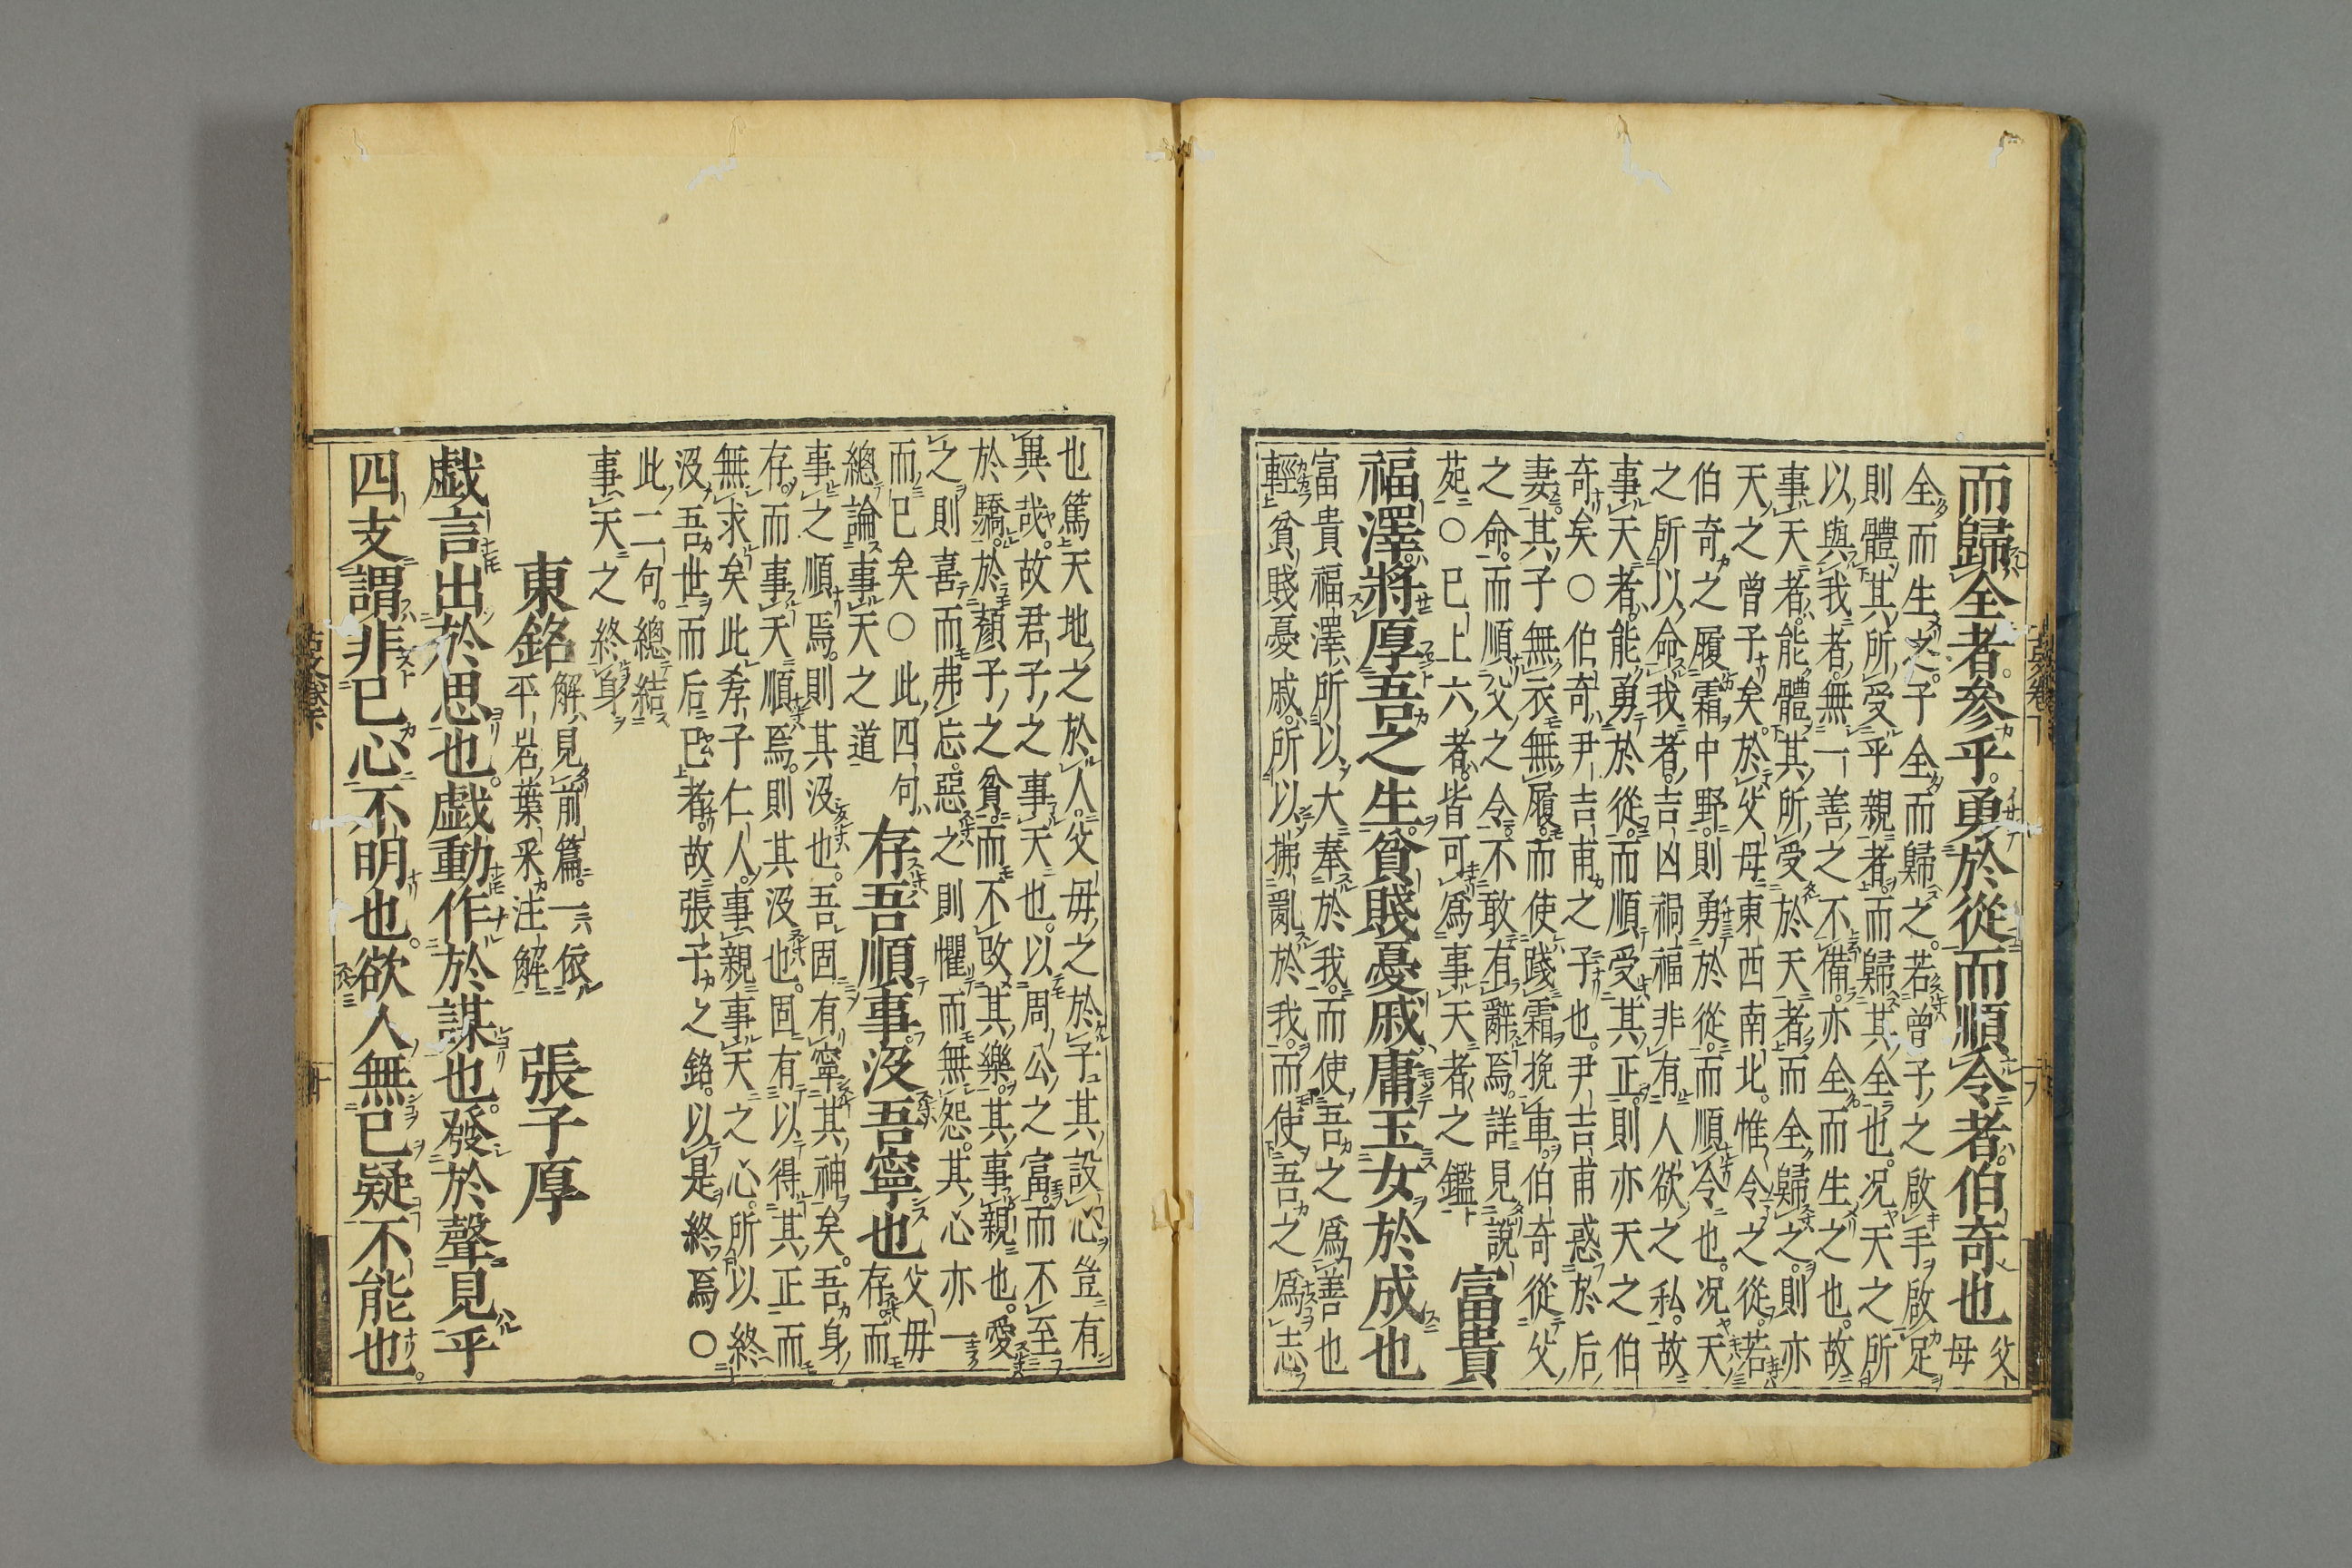 而歸全者參乎勇於從而順令者伯奇也父母
全而生之子全而歸之若曾子之啟手啟足
則體其所受乎親者而歸其全也况天之所
以與我者無一善之不備亦全而生之也故
事天者能體其所受於天者而全歸之則亦
天之曾子矣於父母東西南北惟令之從若
伯奇之履霜中野則勇於從而順令也况天
之所以命我者吉凶禍福非有人欲之私故
事天者能勇於從而順受其正則亦天之伯
奇矣○伯奇尹吉甫之子也尹吉甫惑於后
妻其子無衣無履而使踐霜挽車伯奇從父
之命而順父之令不敢有辭焉詳見說
苑○已上六者皆可爲事天者之鑑富貴
福澤將厚吾之生貧賤憂戚庸玉女於成也
富貴福澤所以大奉於我而使吾之爲善也
輕貧賤憂戚所以拂亂於我而使吾之爲志
也篤天地之於人父母之於子其設心豈有
異哉故君子之事天也以周公之富而不至
於驕於顏子之貧而不改其樂其事親也愛
之則喜而弗忘惡之則懼而無怨其心亦一
而已矣○此四句
總論事天之道存吾順事沒吾寧也父母存而
事之順焉則其沒也吾固有寧其神矣吾身
存而事天順焉則其沒也固有以得其正而
無求矣此孝子仁人事親事天之心所以終
沒吾世而后已者故張子之銘以是終焉○
此二句總結
事天之終身
東銘解見前篇一依平岩葉采注解 張子厚
戯言出於思也戯動作於謀也發於聲見乎
四支謂非已心不明也欲人無已疑不能也